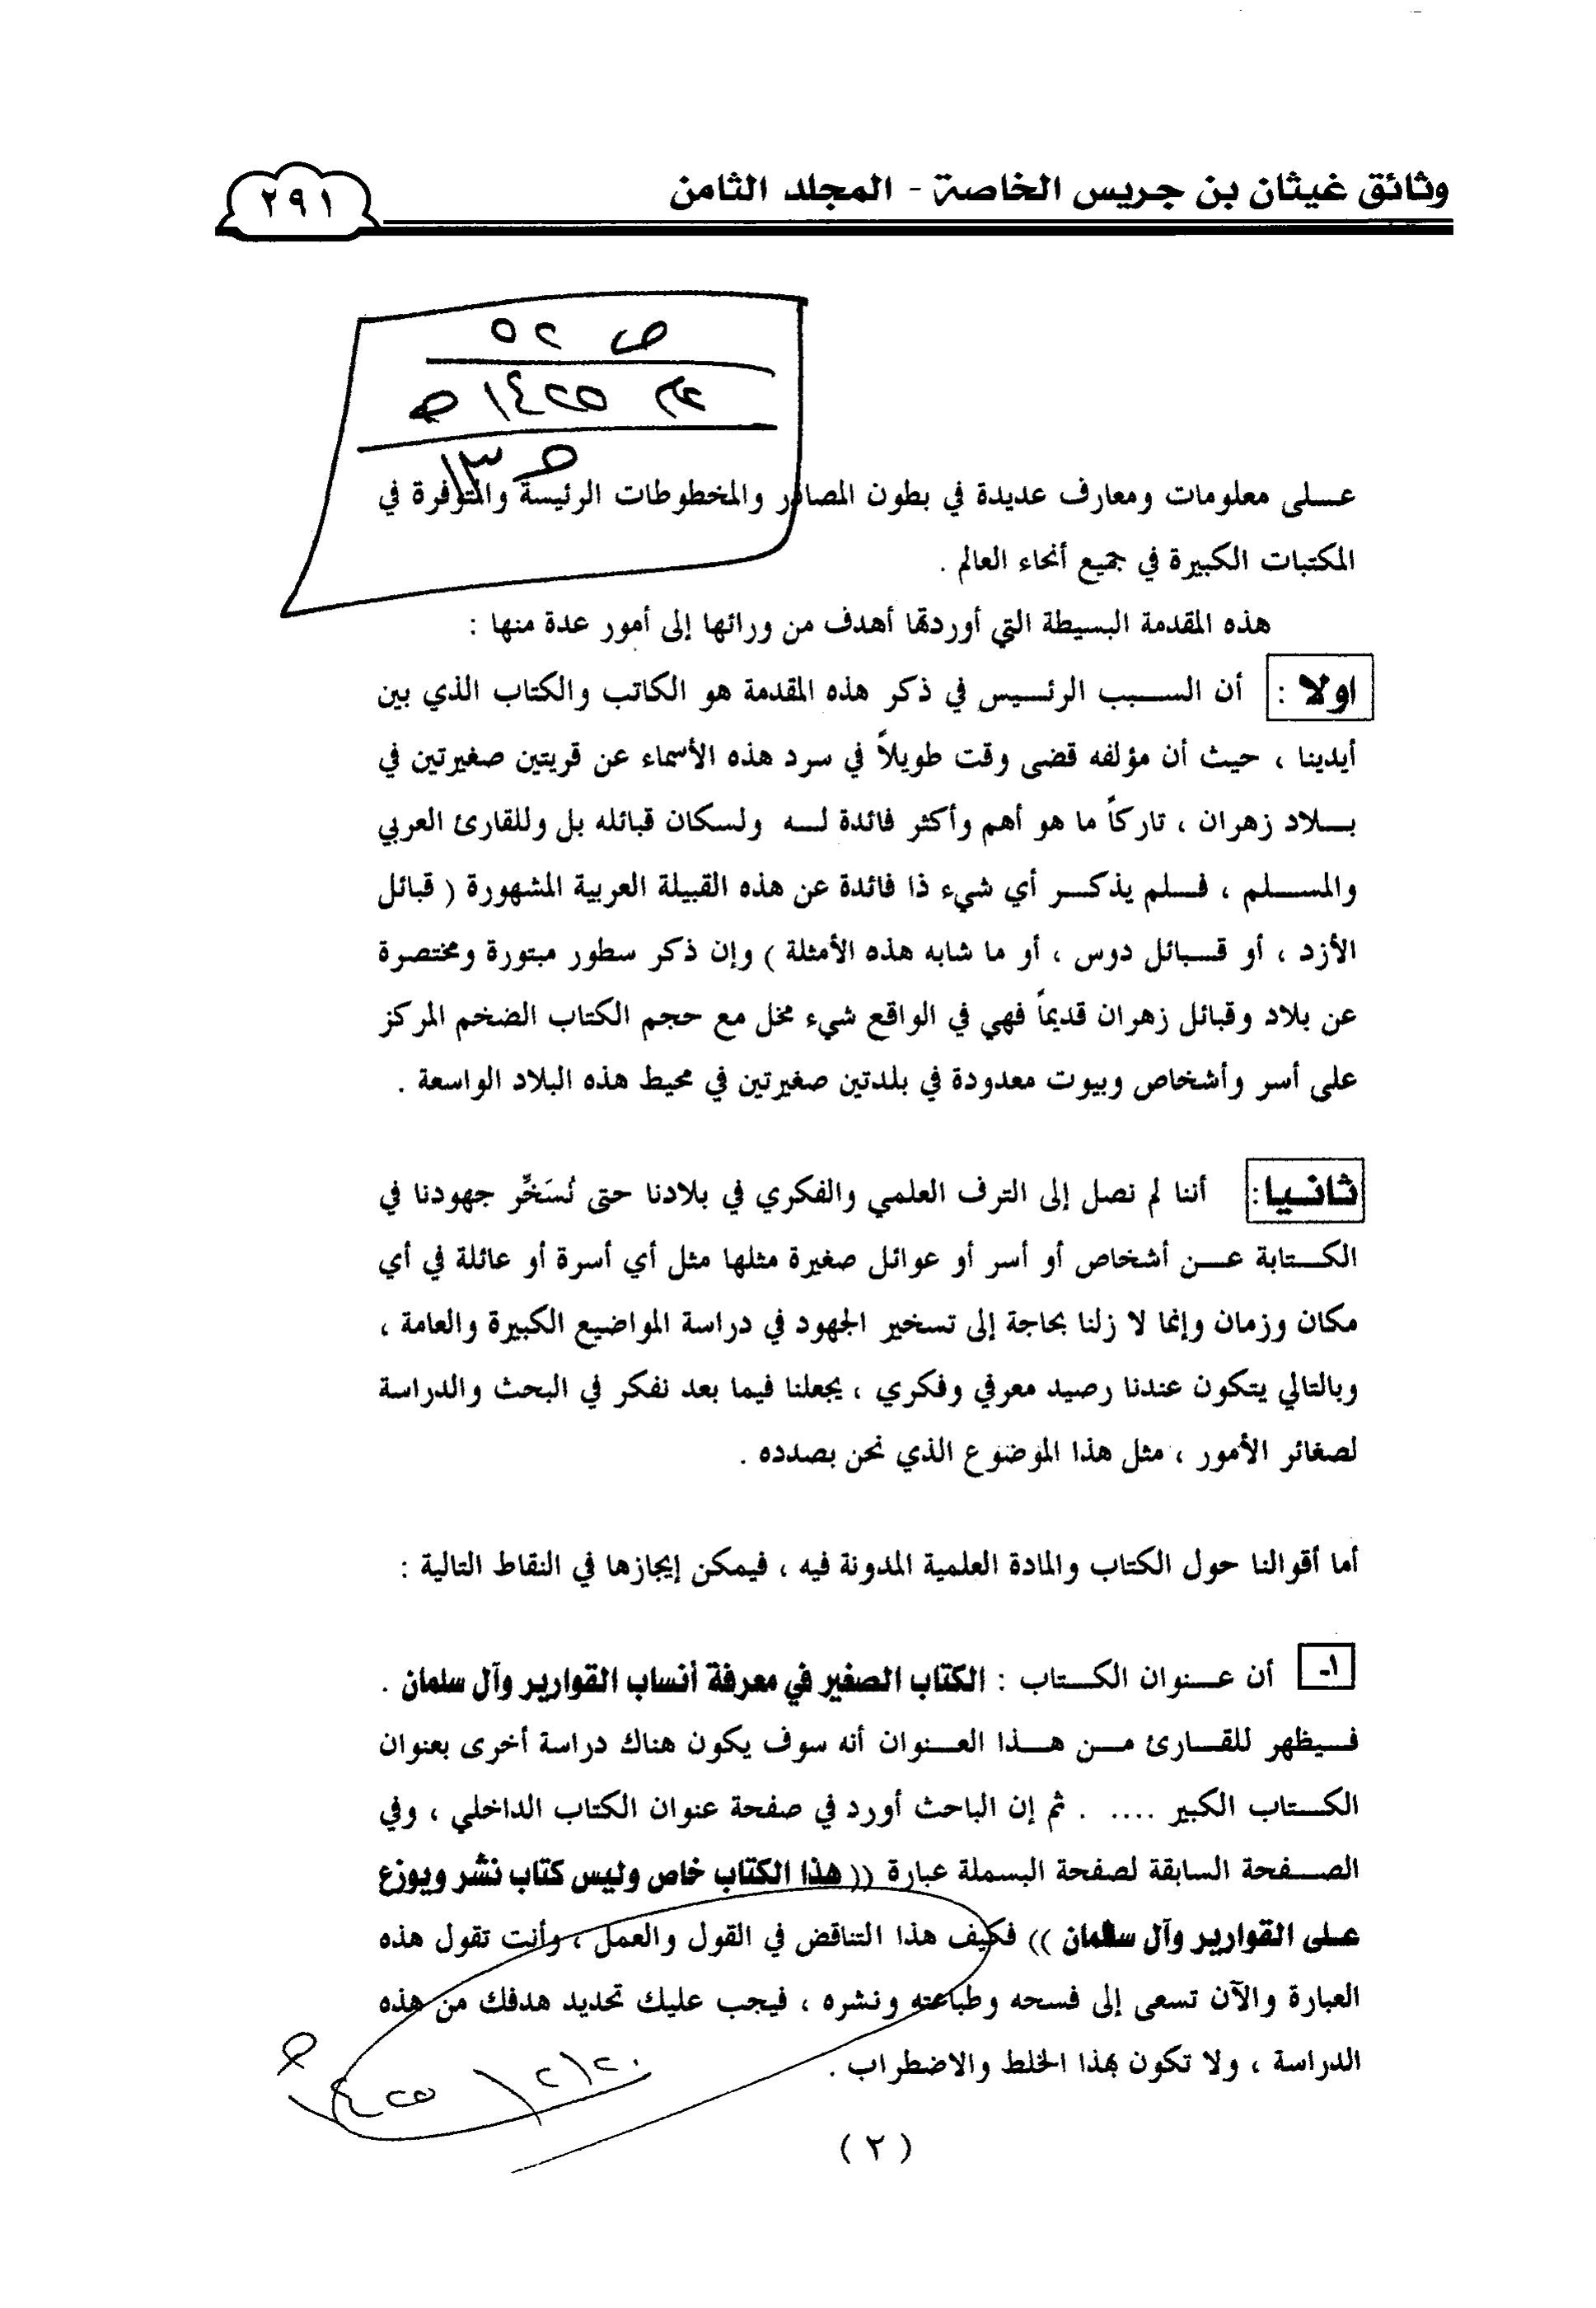 وثائق غيثان بن جريس الخاصة - المجلد الثامن
٢٩١
ص ٥٢
عام ١٤٢٥ هـ
ص ١٣
عـــلى معلومات ومعارف عديدة في بطون المصادر والمخطوطات الرئيسة والمتوفرة في
المكتبات الكبيرة في جميع أنحاء العالم .
هذه المقدمة البسيطة التي أوردتها أهدف من ورائها إلى أمور عدة منها :
اولا : أن الســـبب الرئـــيس في ذكر هذه المقدمة هو الكاتب والكتاب الذي بين
أيدينا ، حيث أن مؤلفه قضى وقت طويلاً في سرد هذه الأسماء عن قريتين صغيرتين في
بـــلاد زهران ، تاركاً ما هو أهم وأكثر فائدة لـــه ولسكان قبائله بل وللقارئ العربي
والمســـلم ، فـــلم يذكـــر أي شيء ذا فائدة عن هذه القبيلة العربية المشهورة ( قبائل
الأزد ، أو قـــبائل دوس ، أو ما شابه هذه الأمثلة ) وإن ذكر سطور مبتورة ومختصرة
عن بلاد وقبائل زهران قديماً فهي في الواقع شيء مخل مع حجم الكتاب الضخم المركز
على أسر وأشخاص وبيوت معدودة في بلدتين صغيرتين في محيط هذه البلاد الواسعة .
ثانـيا: أننا لم نصل إلى الترف العلمي والفكري في بلادنا حتى نُسَخِّر جهودنا في
الكـــتابة عـــن أشخاص أو أسر أو عوائل صغيرة مثلها مثل أي أسرة أو عائلة في أي
مكان وزمان وإنما لا زلنا بحاجة إلى تسخير الجهود في دراسة المواضيع الكبيرة والعامة ،
وبالتالي يتكون عندنا رصيد معرفي وفكري ، يجعلنا فيما بعد نفكر في البحث والدراسة
لصغائر الأمور ، مثل هذا الموضوع الذي نحن بصدده .
أما أقوالنا حول الكتاب والمادة العلمية المدونة فيه ، فيمكن إيجازها في النقاط التالية :
١- أن عـــنوان الكـــتاب : الكتاب الصغير في معرفة أنساب القوارير وآل سلمان .
فـــيظهر للقـــارئ مـــن هـــذا العـــنوان أنه سوف يكون هناك دراسة أخرى بعنوان
الكـــتاب الكبير .... . ثم إن الباحث أورد في صفحة عنوان الكتاب الداخلي ، وفي
الصـــفحة السابقة لصفحة البسملة عبارة (( هذا الكتاب خاص وليس كتاب نشر ويوزع
عـلى القوارير وآل سلمان )) فكيف هذا التناقض في القول والعمل ، وأنت تقول هذه
العبارة والآن تسعى إلى فسحه وطباعته ونشره ، فيجب عليك تحديد هدفك من هذه
الدراسة ، ولا تكون بهذا الخلط والاضطراب .
( ٢ )